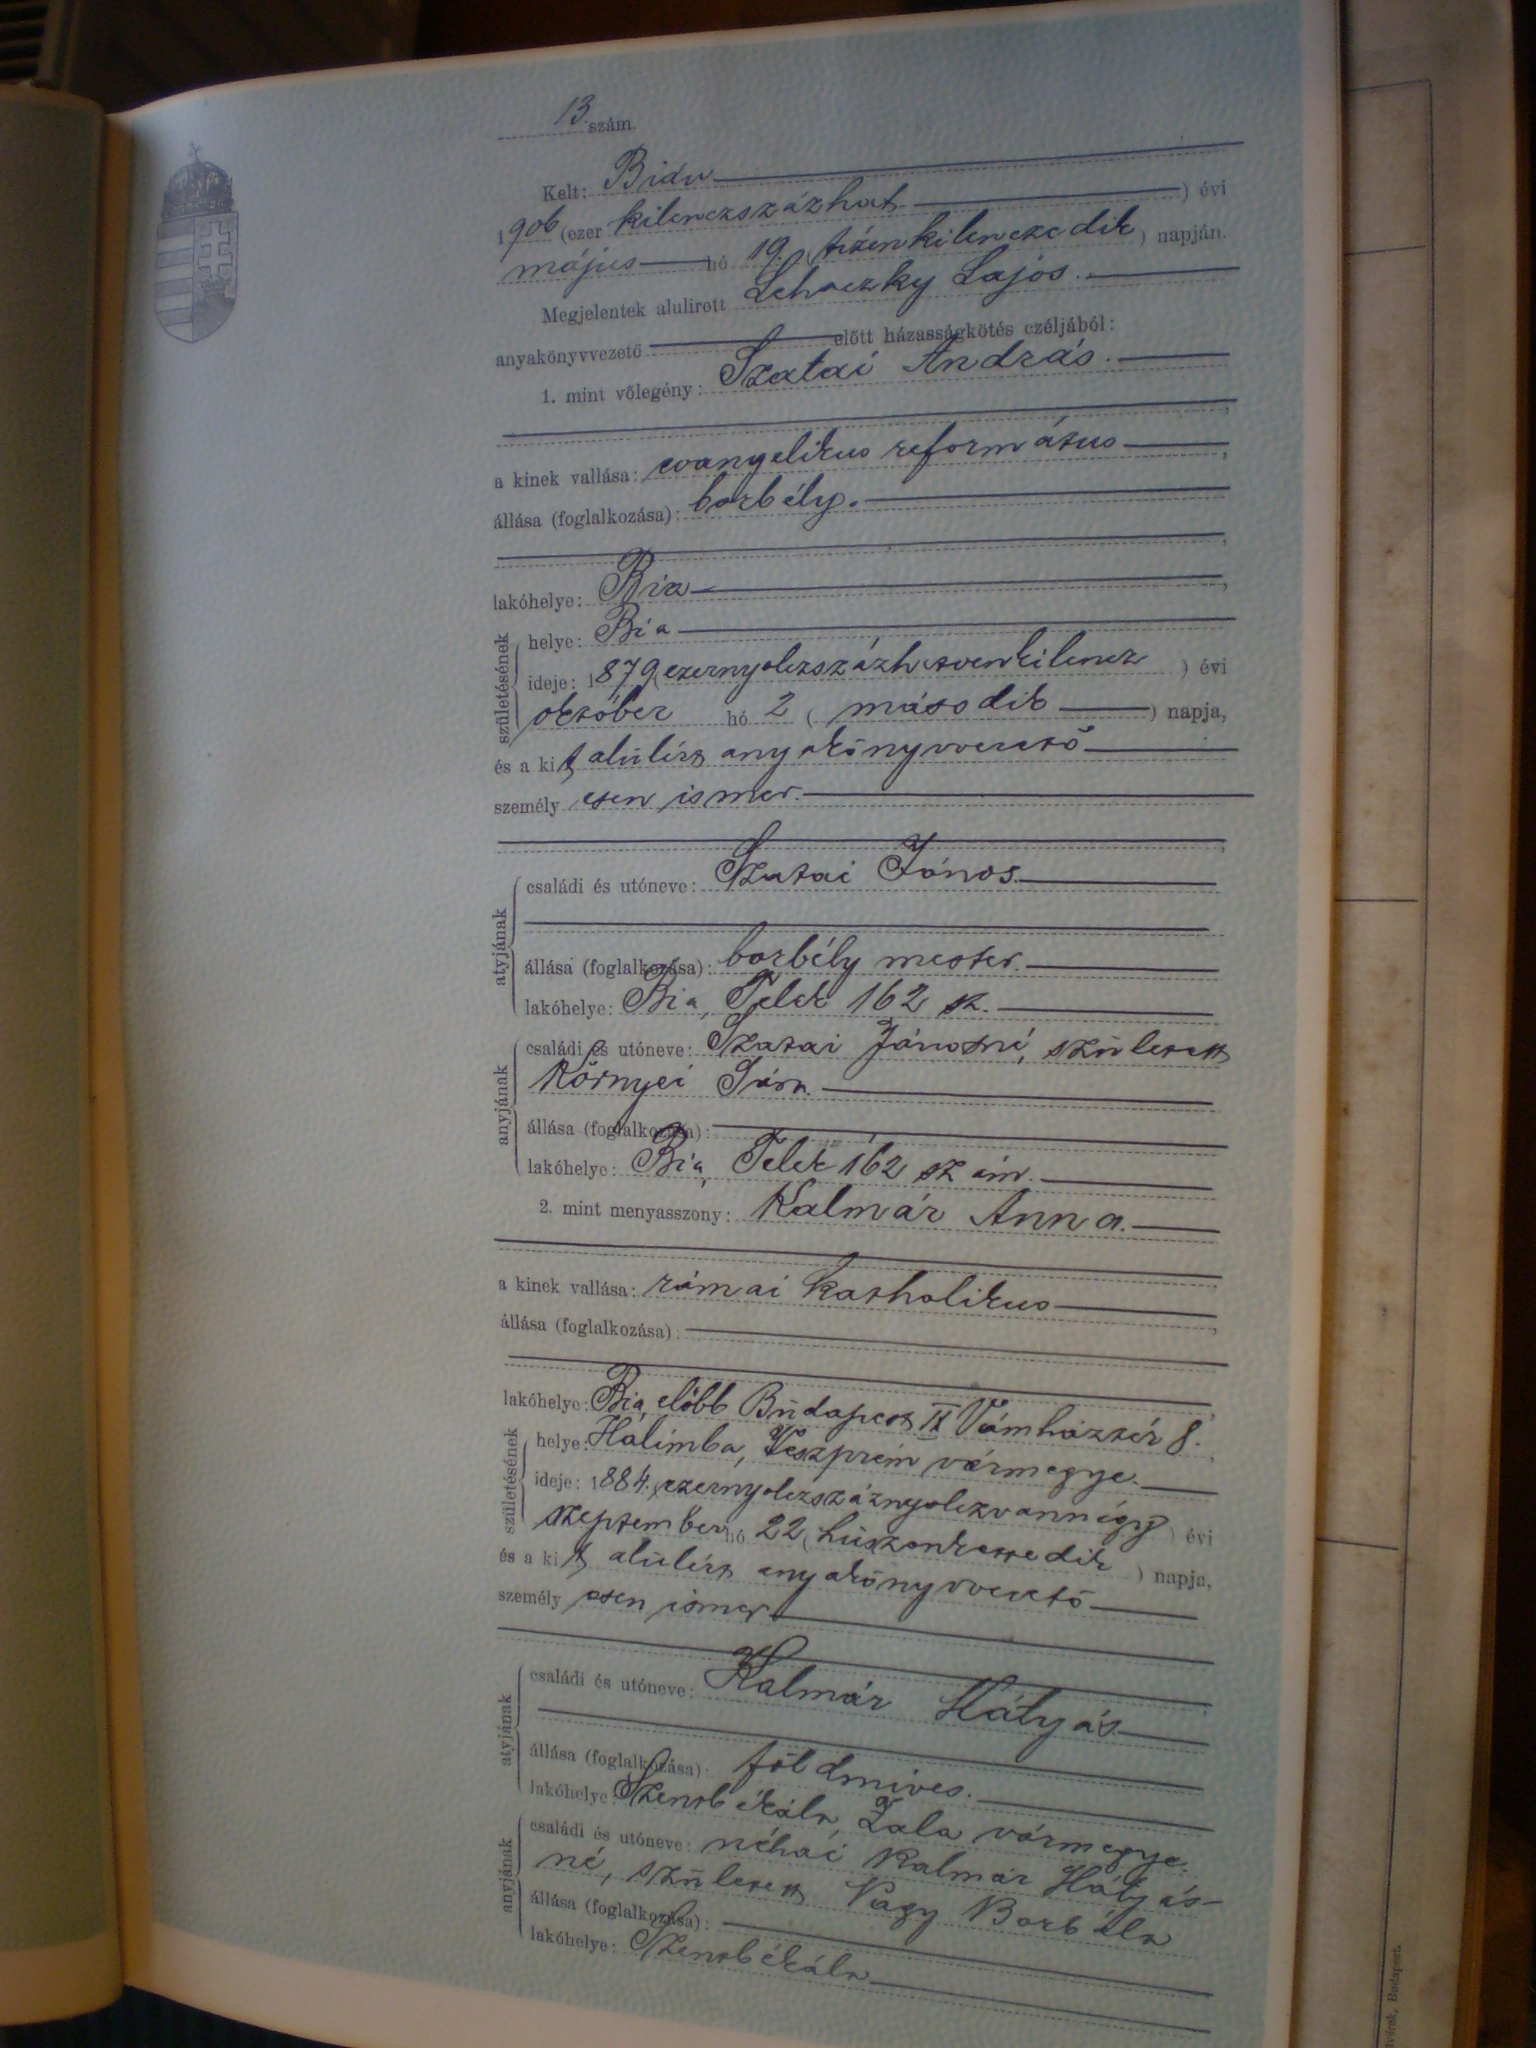 13. szám.
Kelt: Bián
1906 (ezer kilenczszázhat ) évi
május hó 19. (tizenkilenczedik ) napján.
Megjelentek alulirott Lehoczky Lajos.
anyakönyvvezető előtt házasságkötés czéljából:
1. mint vőlegény: Szatai András.
a kinek vallása: evangelikus református ,
állása (foglalkozása): borbély. ,
lakóhelye: Bia ,
születésének
helye: Bia
ideje: 1879 (ezernyolczszázhetvenkilencz ) évi
október hó 2 ( második ) napja,
és a kit alúlírt anyakönyvvezető
személyesen ismer. ,
atyjának
családi és utóneve: Szatai János.
állása (foglalkozása): borbély mester.
lakóhelye: Bia, Telek 162 sz.
anyjának
családi és utóneve: Szatai Jánosné, született
Környei Sára
állása (foglalkozása):
lakóhelye: Bia, Telek 162 szám.
2. mint menyasszony: Kalmár Anna.
a kinek vallása: római katholikus ,
állása (foglalkozása):
lakóhelye: Bia, előbb Budapest IX Vámháztér 8. ,
születésének
helye: Halimba, Veszprém vármegye.
ideje: 1884. (ezernyolczszáznyolczvannégy ) évi
szeptember hó 22 (húszonkettedik ) napja,
és a kit alúlírt anyakönyvvezető
személyesen ismer.
atyjának
családi és utóneve: Kalmár Mátyás
állása (foglalkozása): földmives.
lakóhelye: Szentbékála, Zala vármegye.
anyjának
családi és utóneve: néhai Kalmár Mátyás-
né, született Nagy Borbála
állása (foglalkozása):
lakóhelye: Szentbékála
Budapest.